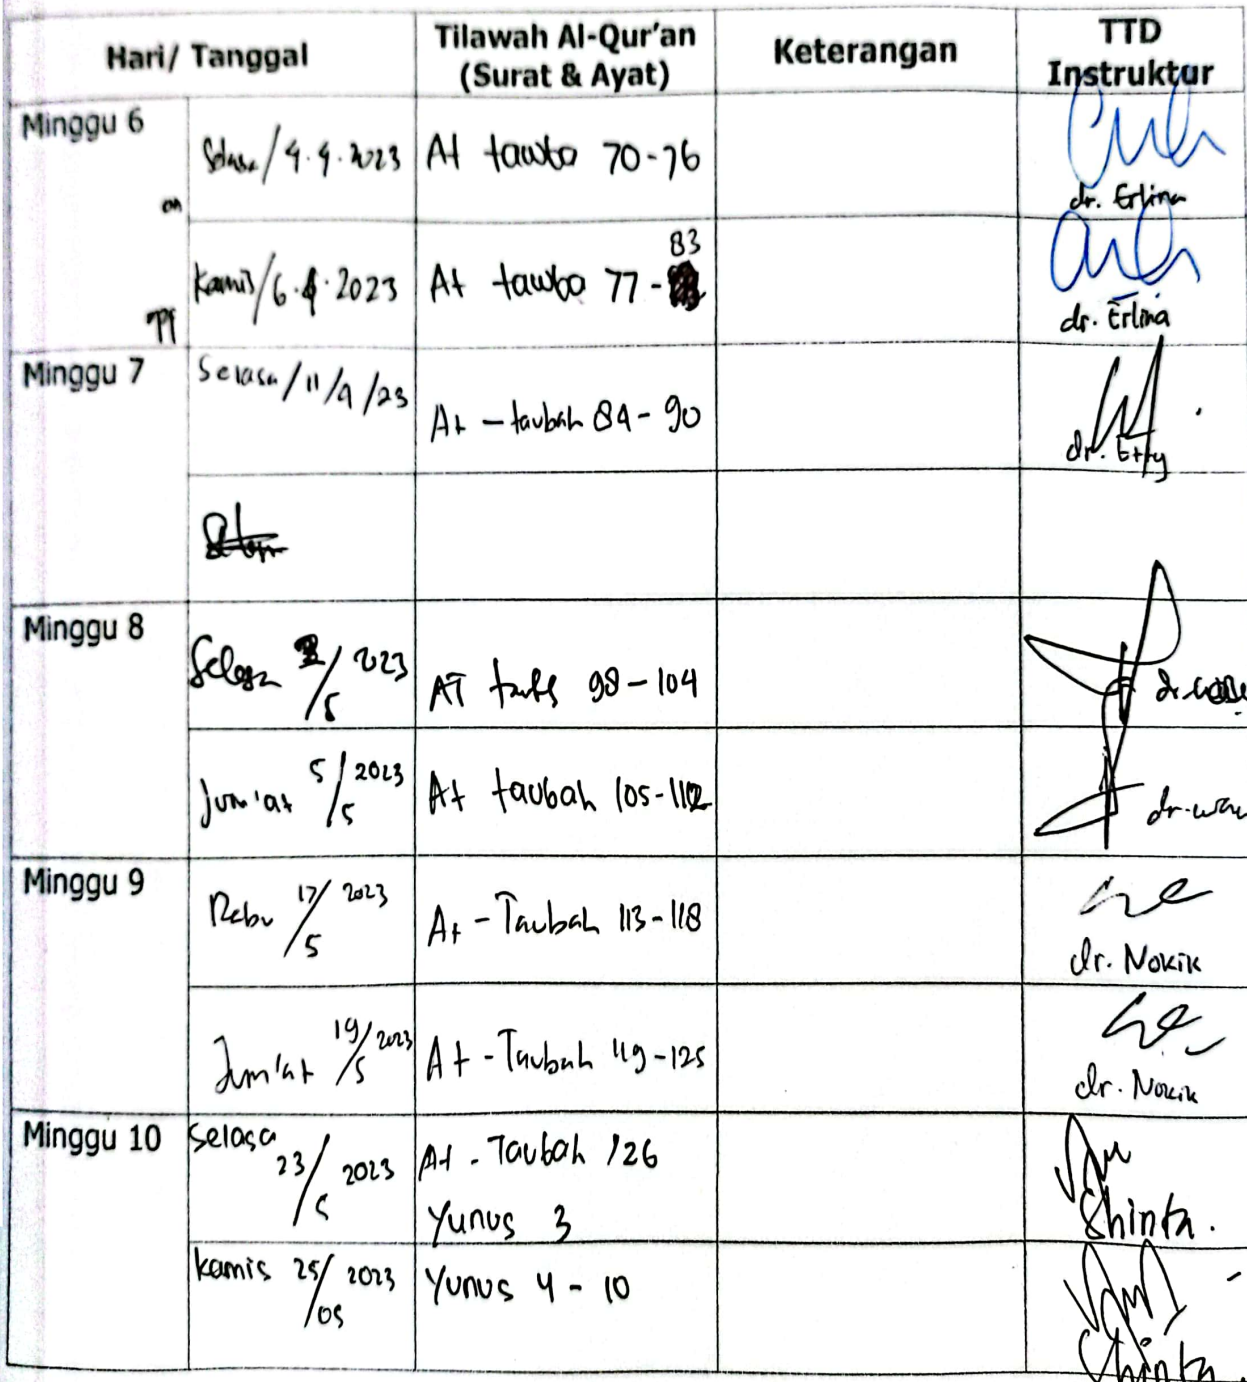 Hari/ Tanggal
Tilawah Al-Qur'an
(Surat & Ayat)
Keterangan
TTD
Instruktur
Minggu 6
Selasa/4.4.2023
At tawba 70-76
dr. Erlina
Kamis/6.4.2023
83
At tawba 77-
dr. Erlina
Minggu 7
Selasa/11/4/23
At-taubah 84-90
dr. Etty
Minggu 8
Selasa 2/5 2023
AT 98-104
Jum'at 5/5 2023
At taubah 105-112
Minggu 9
Rabu 17/5 2023
At-Taubah 113-118
dr. Nokik
Jum'at 19/5 2023
At-Taubah 119-125
dr. Nokik
Minggu 10
Selasa 23/5 2023
At-Taubah 126
Yunus 3
Shinta.
Kamis 25/05 2023
Yunus 4-10
Shinta.